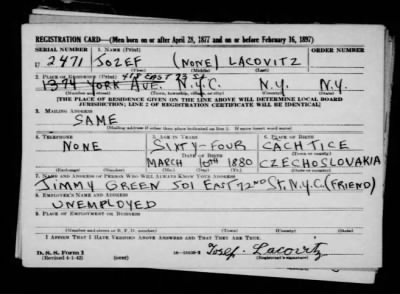 REGISTRATION CARD—(Men born on or after April 28, 1877 and on or before February 16, 1897)
SERIAL NUMBER 1. NAME (Print) ORDER NUMBER
U 2471 JOZEF (NONE) LACOVITZ
(First) (Middle) (Last)
2. PLACE OF RESIDENCE (Print) 418 EAST 73 ST
1374 YORK AVE. N.Y.C. N.Y. N.Y.
(Number and street) (Town, township, village, or city) (County) (State)
[THE PLACE OF RESIDENCE GIVEN ON THE LINE ABOVE WILL DETERMINE LOCAL BOARD
JURISDICTION; LINE 2 OF REGISTRATION CERTIFICATE WILL BE IDENTICAL]
3. MAILING ADDRESS
SAME
(Mailing address if other than place indicated on line 2. If same insert word same)
4. TELEPHONE 5. AGE IN YEARS 6. PLACE OF BIRTH
NONE SIXTY-FOUR CACHTICE
DATE OF BIRTH (Town or county)
MARCH 10TH 1880 CZECHOSLOVAKIA
(Exchange) (Number) (Mo.) (Day) (Yr.) (State or country)
7. NAME AND ADDRESS OF PERSON WHO WILL ALWAYS KNOW YOUR ADDRESS
JIMMY GREEN 501 EAST 72ND ST. N.Y.C. (FRIEND)
8. EMPLOYER'S NAME AND ADDRESS
UNEMPLOYED
9. PLACE OF EMPLOYMENT OR BUSINESS
(Number and street or R. F. D. number) (Town) (County) (State)
I AFFIRM THAT I HAVE VERIFIED ABOVE ANSWERS AND THAT THEY ARE TRUE.
D. S. S. Form 1
(Revised 4-1-42) (over) Josef Lacovitz
(Registrant's signature)